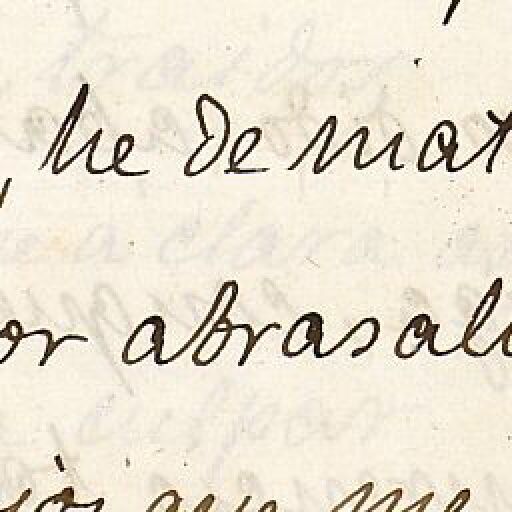 , he de mat
or abrasal
jos que me